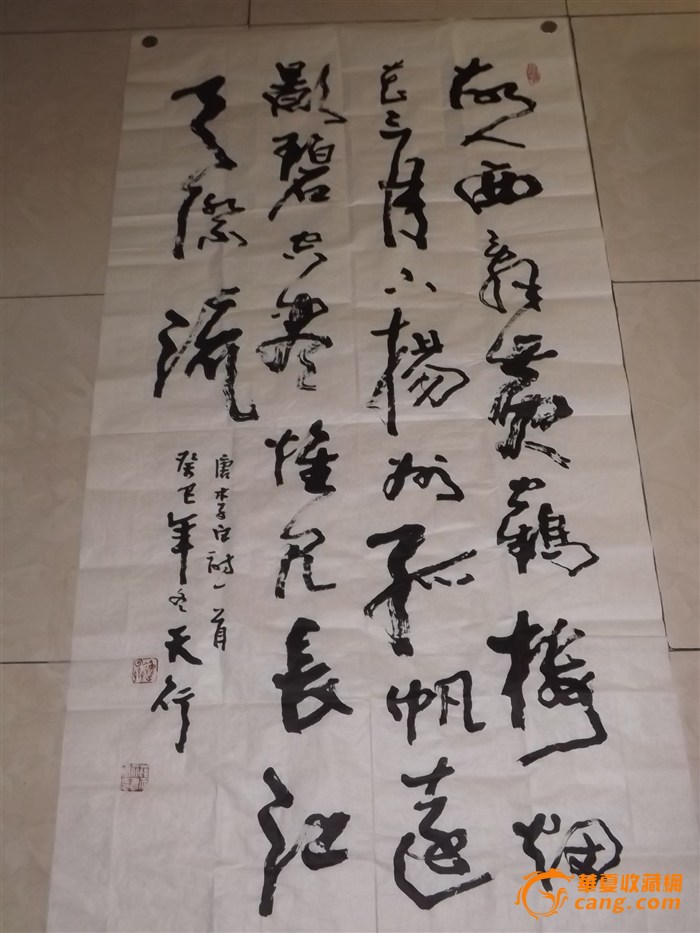 故人西辞黄鹤楼烟
花三月下扬州孤帆远
影碧空尽惟见長江
天際流
唐李白詩一首
癸巳年冬天行
華夏收藏網
cang.com